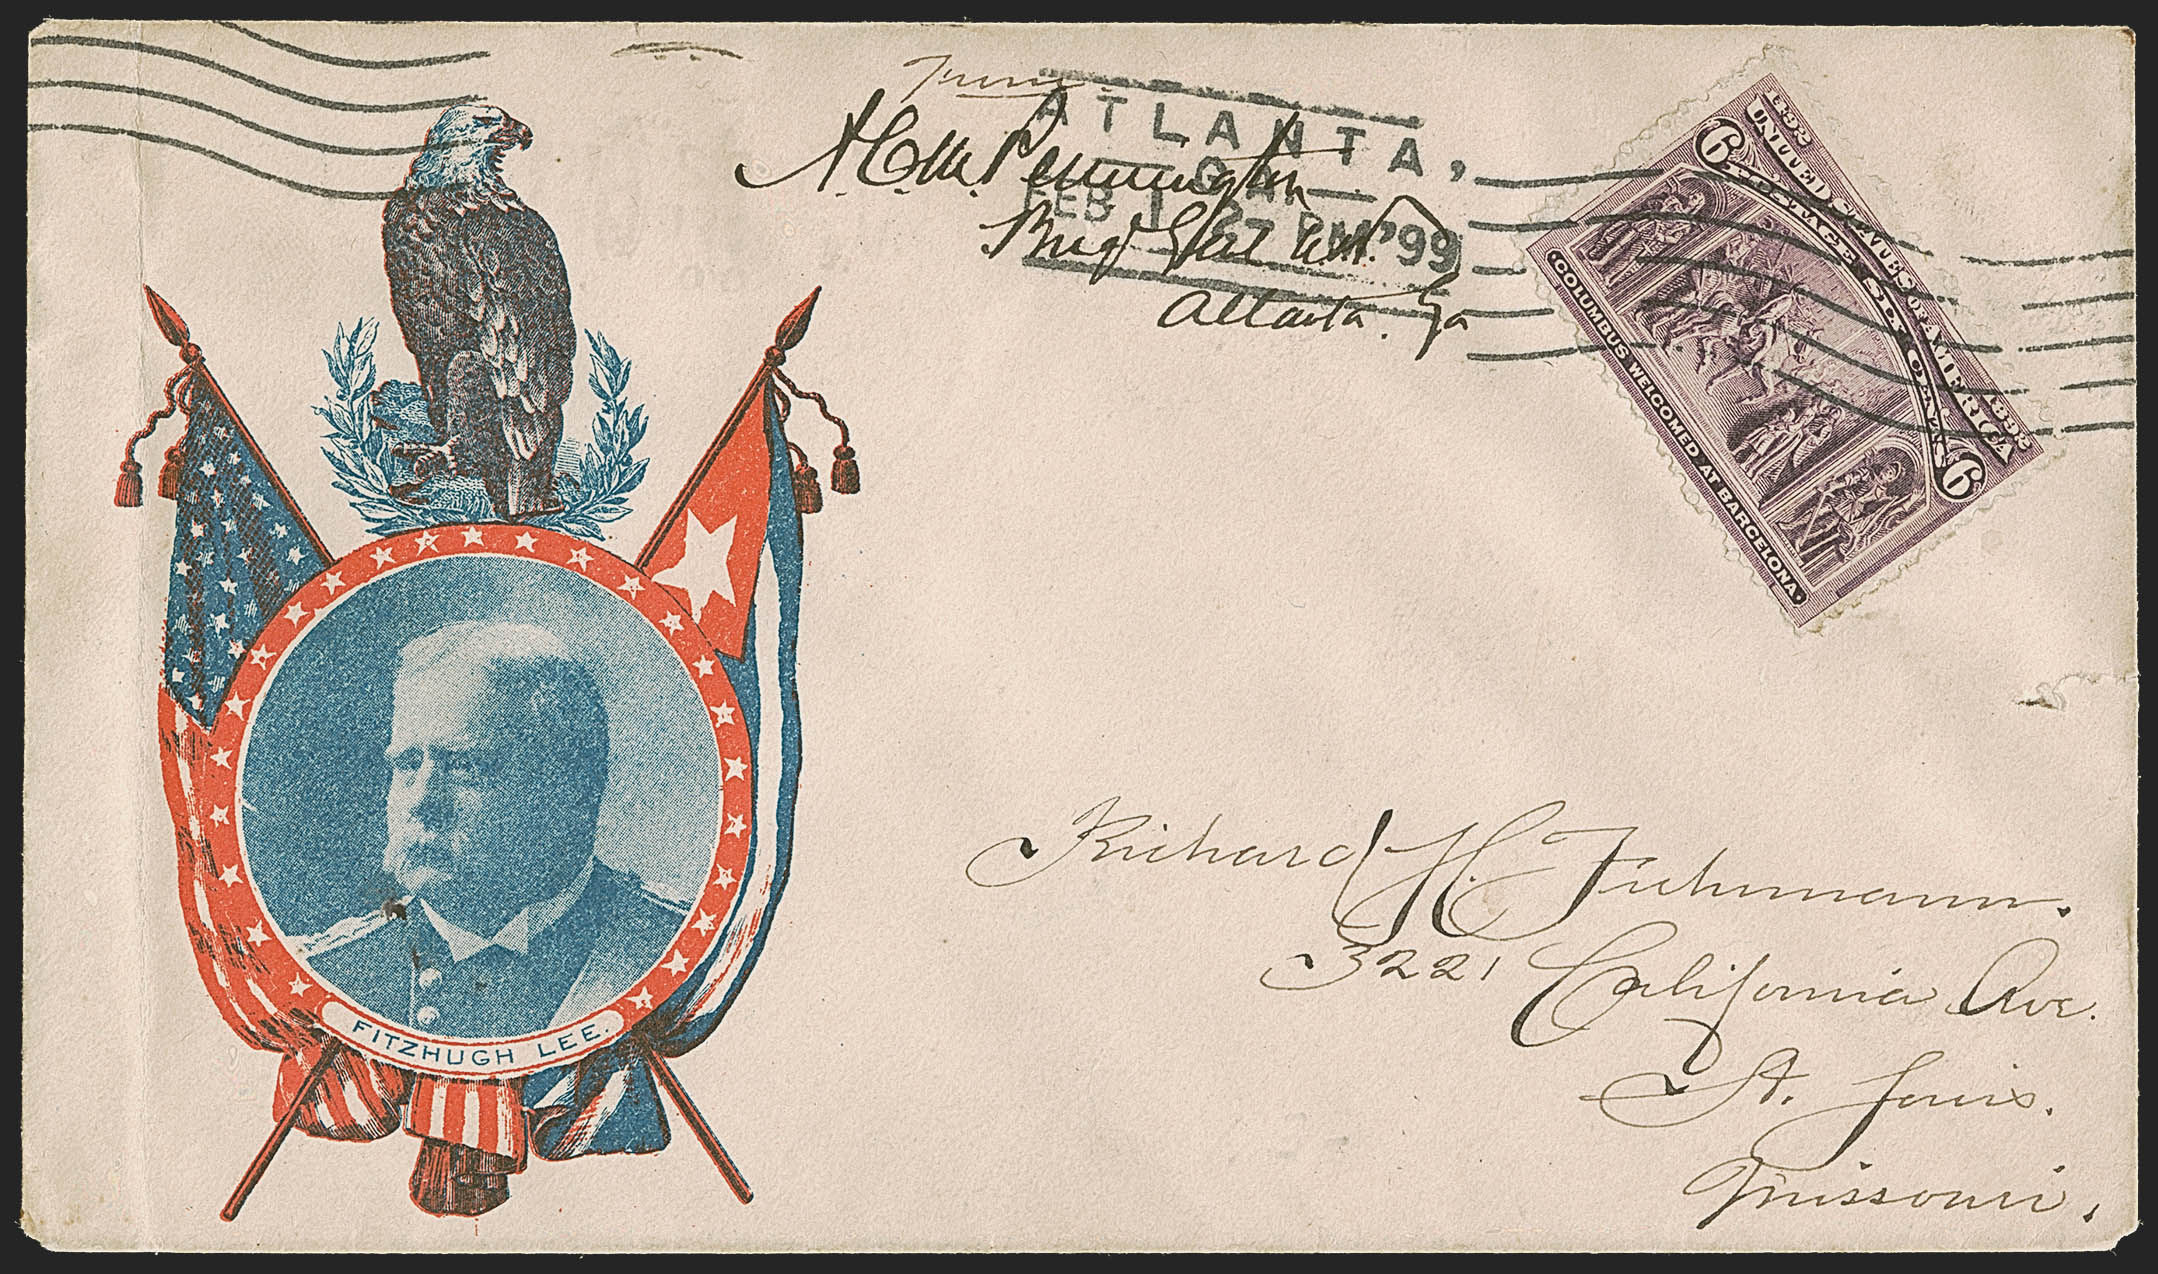 From
A.C.W. Pennington
Brig Genl U.S.V.
Atlanta. Ga
ATLANTA,
GA.
FEB 1 7 PM '99
1492
UNITED STATES OF AMERICA
1892
6 POSTAGE SIX CENTS 6
COLUMBUS WELCOMED AT BARCELONA.
FITZHUGH LEE.
Richard H. Fuhrmann.
3221 California Ave.
St. Louis.
Missouri.